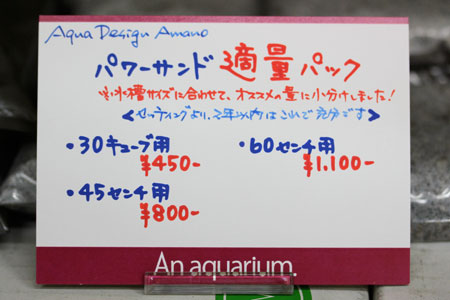 Aqua Design Amano
パワーサンド 適量パック
※水槽サイズに合わせて、オススメの量に小分けしました!
<セッティングより、2年以内はこれで充分です>
・30キューブ用
¥450-
・60センチ用
¥1.100-
・45センチ用
¥800-
An aquarium.